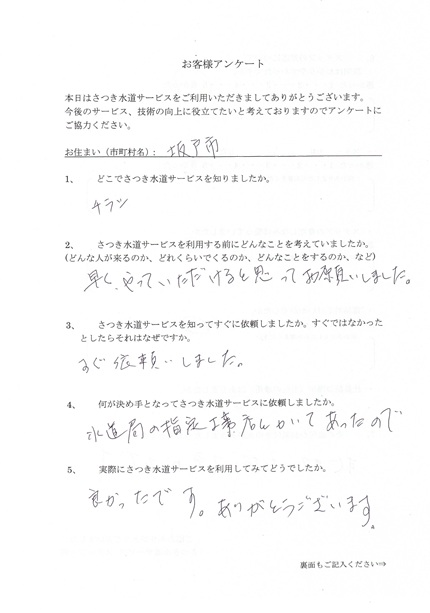 お客様アンケート
本日はさつき水道サービスをご利用いただきましてありがとうございます。
今後のサービス、技術の向上に役立てたいと考えておりますのでアンケートに
ご協力ください。
お住まい（市町村名）： 坂戸市
1、 どこでさつき水道サービスを知りましたか。
チラシ
2、 さつき水道サービスを利用する前にどんなことを考えていましたか。
(どんな人が来るのか、どれくらいでくるのか、どんなことをするのか、など)
早く、やっていただけると思ってお願いしました。
3、 さつき水道サービスを知ってすぐに依頼しましたか。すぐではなかった
としたらそれはなぜですか。
すぐ依頼いしました。
4、 何が決め手となってさつき水道サービスに依頼しましたか。
水道局の指定工事店とかいてあったので
5、 実際にさつき水道サービスを利用してみてどうでしたか。
良かったです。ありがとうございます。
裏面もご記入ください⇒